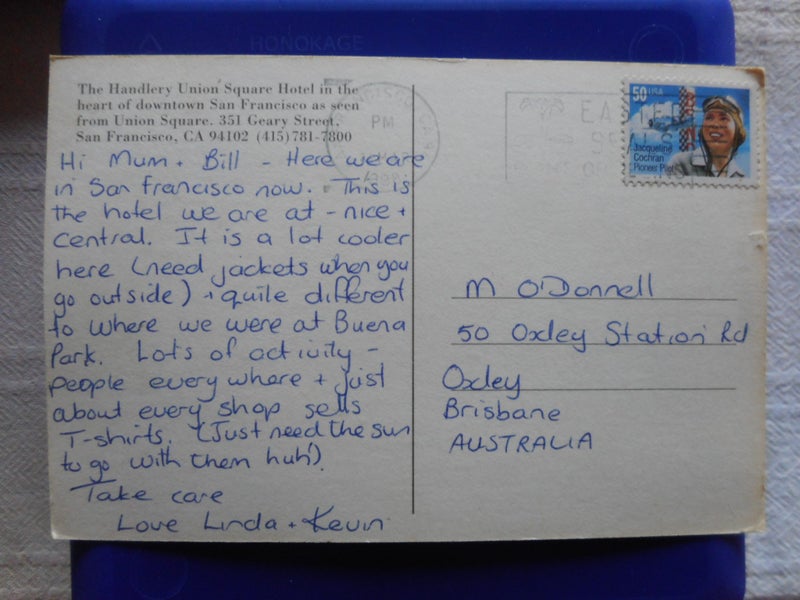 HONOKAGE
The Handlery Union Square Hotel in the
heart of downtown San Francisco as seen
from Union Square. 351 Geary Street,
San Francisco, CA 94102 (415) 781-7800
Hi Mum + Bill - Here we are
in San Francisco now. This is
the hotel we are at - nice +
central. It is a lot cooler
here (need jackets when you
go outside) + quite different
to where we were at Buena
Park. Lots of activity -
people everywhere + just
about every shop sells
T-shirts. (Just need the sun
to go with them huh!)
Take care
Love Linda + Kevin
PM
50 USA
Jacqueline
Cochran
Pioneer Pilot
M O'Donnell
50 Oxley Station Rd
Oxley
Brisbane
AUSTRALIA